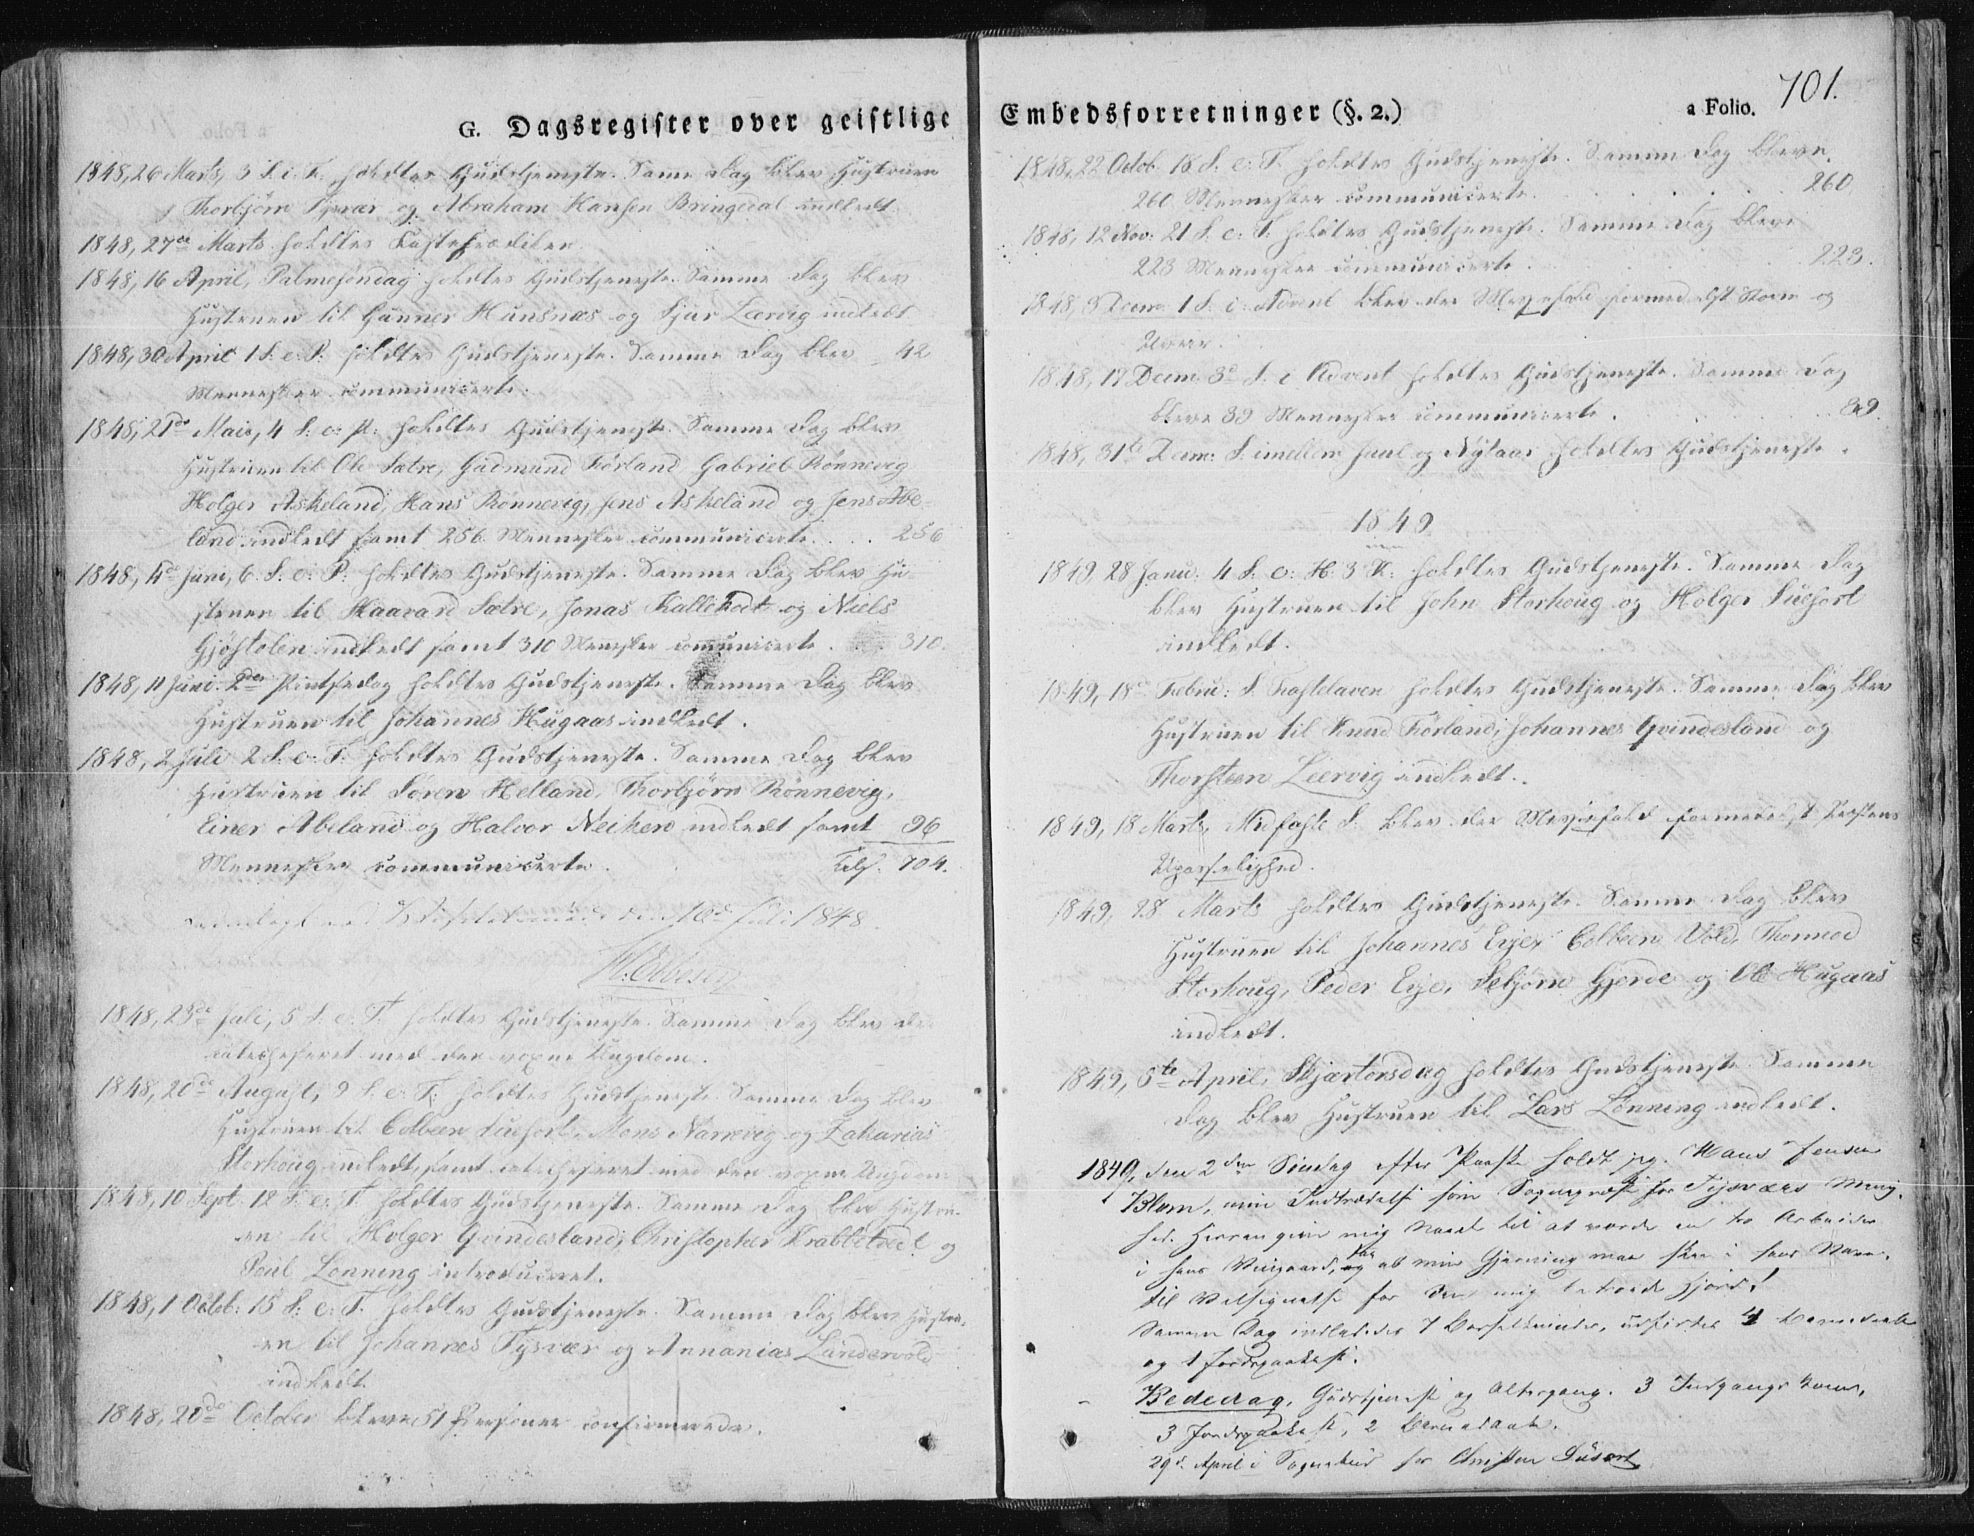 G. Dagsregister over geistlige
1848, 26 Marts, 3 S. i F. holdtes Gudstjeneste. Samme Dag blev Hustruen
Thorbjørn Tysvær og Abraham Hansen Bringedal indledt
1848, 27de Marts holdtes Fasteprædiken.
1848, 16 April, Palmesøndag holdtes Gudstjeneste. Samme Dag blev
Hustruen til Gunner Hunsnæs og Lervig indledt
1848, 30 April 1 S. e. P. holdtes Gudstjeneste. Samme Dag blev 42
Mennesker communicerte.
1848, 21de Maie, 4 S. e. P. holdtes Gudstjeneste. Samme Dag blev
Hustruen til Ole Sætre, Gudmund Førland Gabriel Rønnevig
Holger Askeland, Hans Rønnevig, Jens Askeland og Jens Abe-
land indledt samt 256 Mennesker communicerte. . . . 256
1848, 4de Juni, 6 S. e. P. holdtes Gudstjeneste. Samme Dag blev Hu-
struen til Haavard Sætre, Jonas Kallekodt og Niels
Gjøstølen indledt samt 310 Mennesker communicerte. 310.
1848, 11 Juni. 2den Pintsedag holdtes Gudstjeneste. Samme Dag blev
Hustruen til Johannes Hugaas indledt.
1848, 2 Juli 2 S. e. T. holdtes Gudstjeneste. Samme Dag blev
Hustruen til Søren Helland, Thorbjørn Rønnevig,
Einer Abeland og Halvor Neiken indledt samt 96
Mennesker communicerte. 704.
Juli 1848.
1848, 23de Juli, 5 S. e. T. holdtes Gudstjeneste. Samme Dag blev der
catecheseret med den voxne Ungdom.
1848, 20de August, 9 S. e. T. holdtes Gudstjeneste. Samme Dag blev
Hustruen til Colbeen Susort, Mons Narrevig og Zakarias
Storhoug indledt, samt catecheseret med den voxne Ungdom
1848, 10 Sept. 12 S. e. T. holdtes Gudstjeneste. Samme Dag blev Hustru-
en til Holger Gvindesland, Christopher Krabbetvedt og
Poul Lønning introduceret.
1848, 1 Octob. 15 S. e. T. holdtes Gudstjeneste. Samme Dag blev Hustru-
en til Johannes Tysvær og Annanias Lundervold
indledt.
1848, 20de October bleve 51 Personer confirmerede.
Embedsforretninger (§. 2.)
a Folio. 701.
1848, 22 Octob. 18 S. e. T. holdtes Gudstjeneste. Samme Dag bleve
260 Mennesker communicerte. . . . 260.
1848, 12 Nov. 21 S. e. T. holdtes Gudstjeneste. Samme Dag bleve
223 Mennesker communicerte. . . . 223.
1848, 3 Decem. 1 S. i Advent blev der Messefald formedelst Storm og
Uveir.
1848, 17 Decm. 3de S. i Advent holdtes Gudstjeneste. Samme Dag
bleve 39 Mennesker communicerte.
1848, 31te Decm. S. imellem Juul og Nytaar holdtes Gudstjeneste.
1849.
1849, 28 Janu. 4 S. e. H. 3 K. holdtes Gudstjeneste. Samme Dag
blev Hustruen til John Storhoug og Holger Susort
indledt.
1849, 18de Februa: S. Fastelaven holdtes Gudstjeneste. Samme Dag blev
Hustruen til Knud Førland, Johannes Gvindesland og
Thorsteen Leervig indledt.
1849, 18 Marts, Midfaste S. blev der Messefald formedelst Præstens
Upasselighed.
1849, 28 Marts holdtes Gudstjeneste. Samme Dag blev
Hustruen til Johannes Eije, Colbeen Vold, Thormod
Storhoug, Peder Eije, Sebjørn Gjerde og Ole Hugaas
indledt.
1849, 5te April, Skjærtorsdag holdtes Gudstjeneste. Samme
Dag blev Hustruen til Lars Lønning indledt.
1849, den 2den Søndag efter Paaske holdt jeg, Hans Jensen
Blom, min Indtrædelse som Sognepræst for Tysværs Menig-
hed. Herren give mig Naade til at vorde en tro Arbeider
i hans Viingaard, og at min Gjerning maa skee i hans Navn,
til Velsignelse for den mig betroede Hjord!
Samme Dag indlededes 7 Barselkvinder, udførtes 4 Barnedaab
og 1 Jordspaakast.
Bededag, Gudstjeneste og Altergang. 3 Indgangs Koner,
3 Jordspaakast, 2 Barnedaab.
29de April i Sognebud for Christen Susort